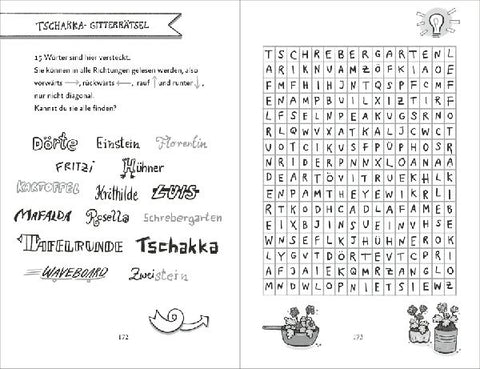 TSCHAKKA-GITTERRÄTSEL
15 Wörter sind hier versteckt.
Sie können in alle Richtungen gelesen werden, also
vorwärts →, rückwärts ←, rauf ↑ und runter ↓,
nur nicht diagonal.
Kannst du sie alle finden?
Dörte Einstein Florentin
FRITZI Hühner
KARTOFFEL Krithilde LUIS
MAFALDA Rosella Schrebergarten
TAFELRUNDE Tschakka
WAVEBOARD Zweistein
172
TSCHREBERGARTENL
ARIKNVAMZÖFKIAOE
FMFHIHJNTQSPFCMF
ENAMPBUILXIZTIRF
LFSELNPEAKUGSRNO
RLQWVXATKALJCWCT
UOTCIKUSFPÜPHOSR
NRIDERPNNXLOANAA
DEARTÖVITRUEKHLK
ENDPAMTHEYEWIKRLI
RTKODHCADLAFAMEB
EIXBJINSUEINVHSE
WNSEFLKJHÜHNEROK
LYGVTDÖRTEVTCPRI
AFJAIEKQMRZANGLO
MNDWLOPNIETSIEWZ
173